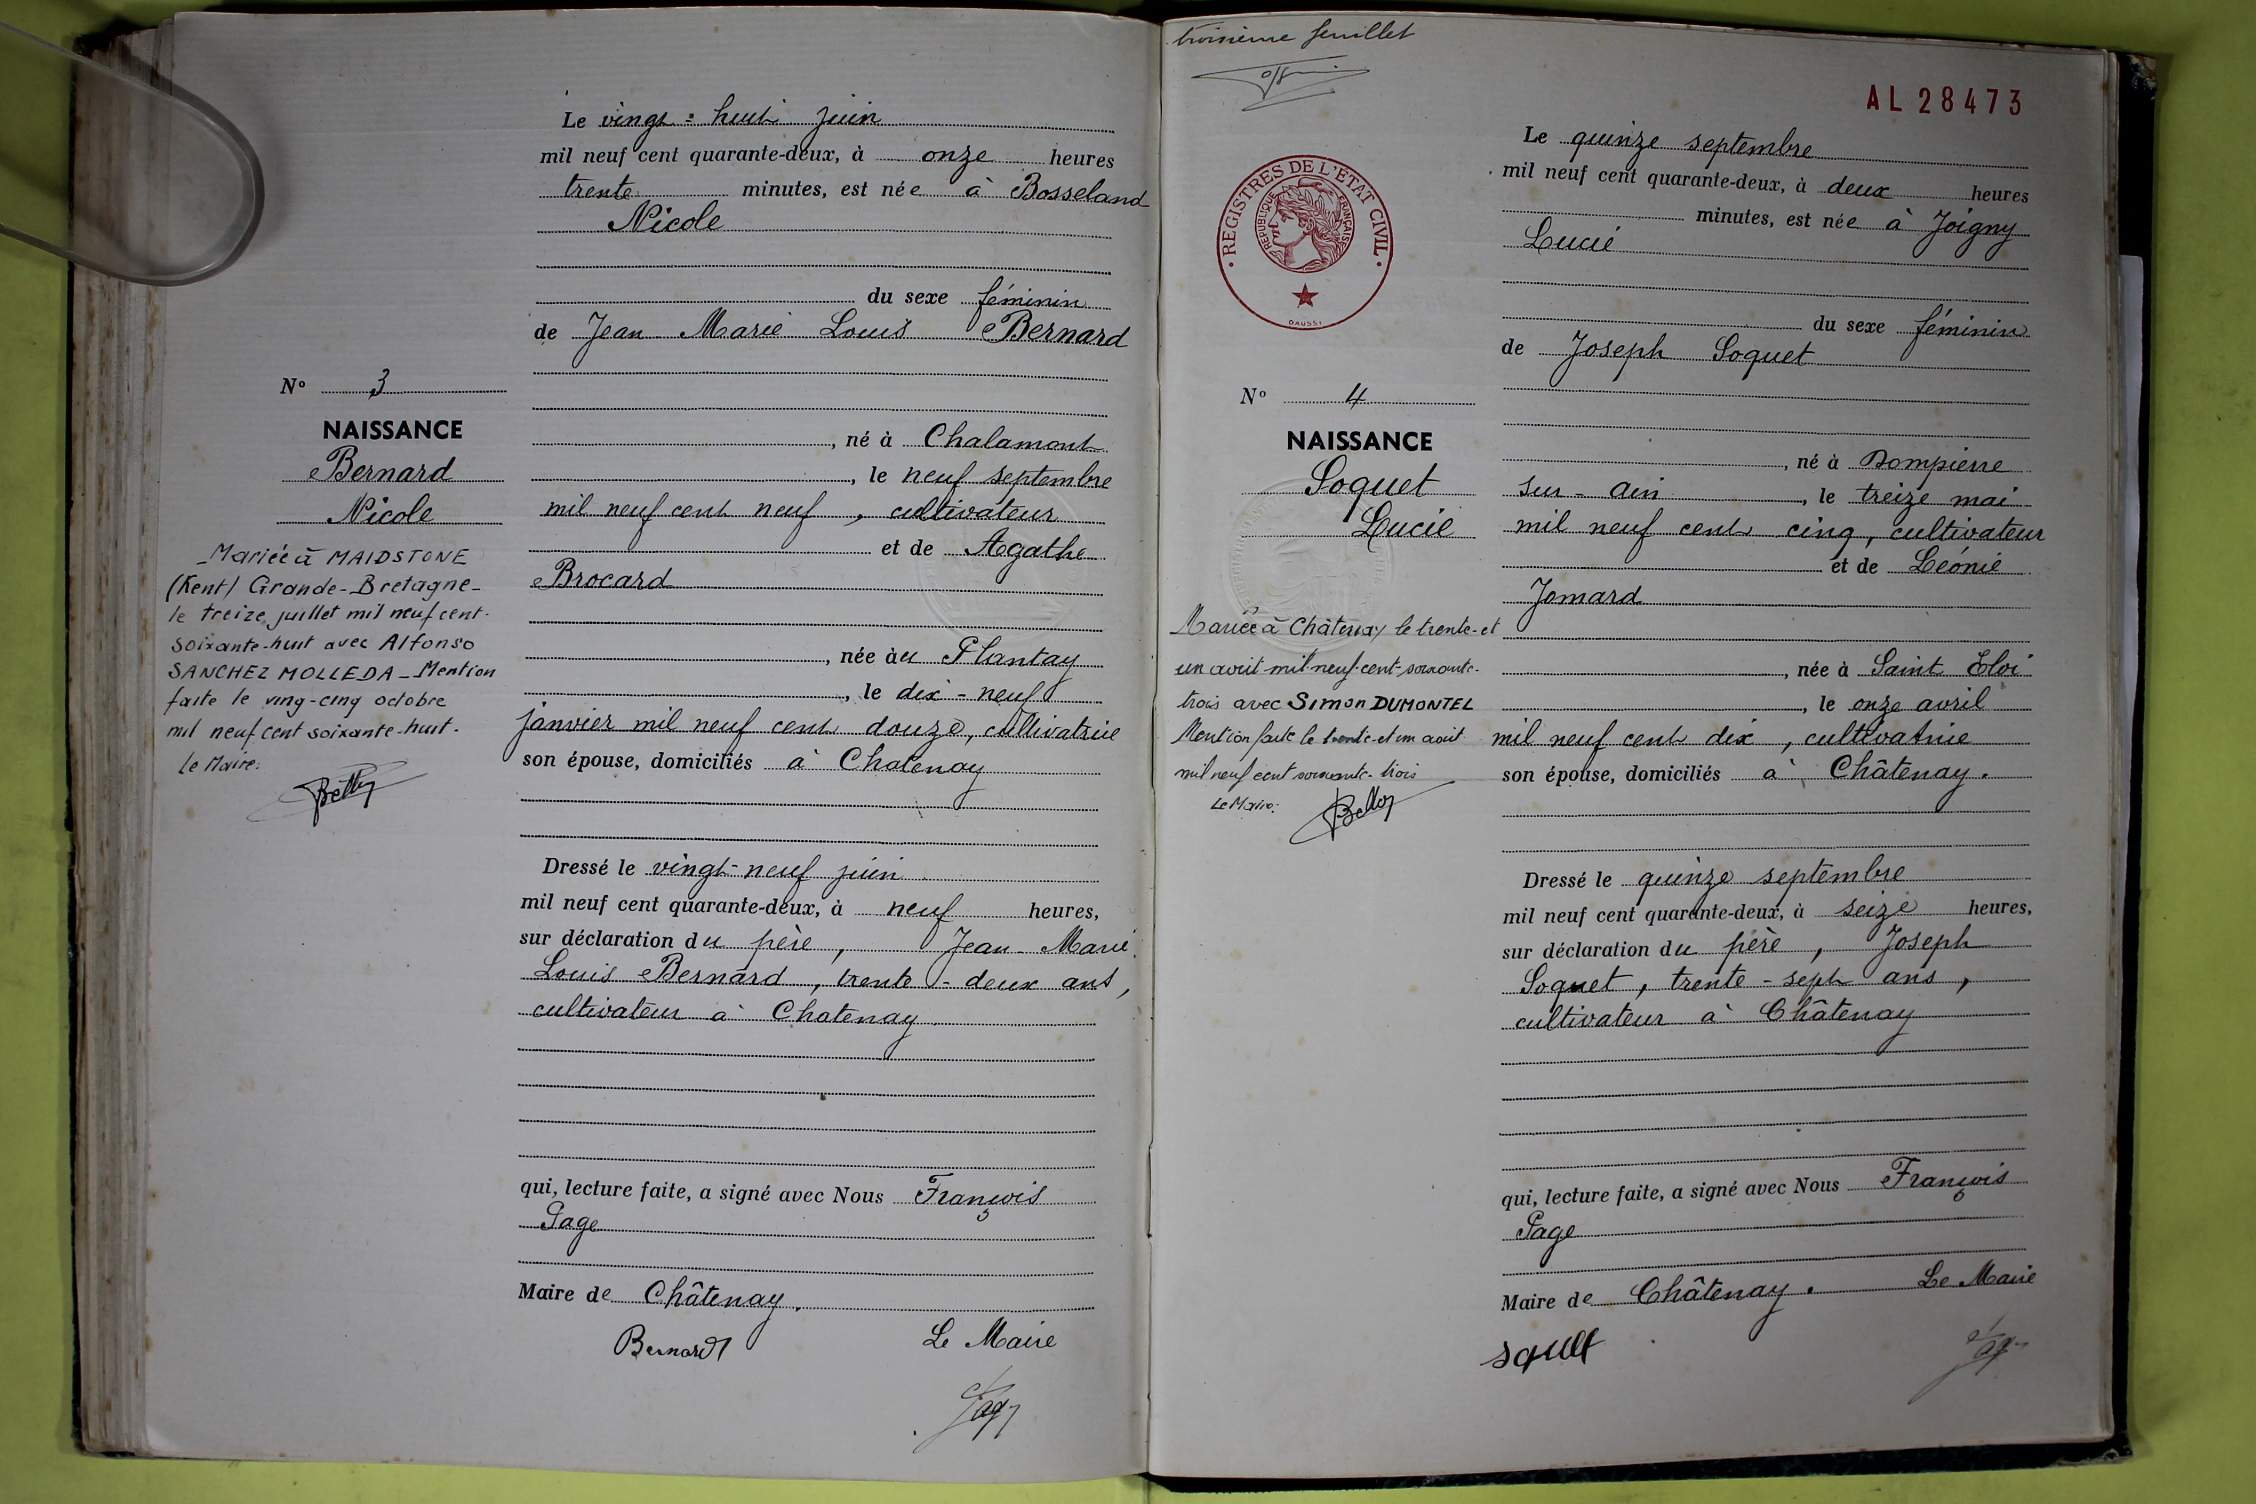 Le vingt-huit juin
mil neuf cent quarante-deux, à onze heures
trente minutes, est née à Bosseland
Nicole
du sexe féminin
de Jean Marie Louis Bernard
, né à Chalamont
, le neuf septembre
mil neuf cent neuf, cultivateur
et de Agathe
Brocard
, née au Plantay
, le dix-neuf
janvier mil neuf cent douze, cultivatrice
son épouse, domiciliés à Chatenay
Dressé le vingt-neuf juin
mil neuf cent quarante-deux, à neuf heures,
sur déclaration du père, Jean-Marie
Louis Bernard, trente-deux ans,
cultivateur à Chatenay
qui, lecture faite, a signé avec Nous François
Page
Maire de Châtenay.
Bernard Le Maire
Nº 3
NAISSANCE
Bernard
Nicole
Mariée à MAIDSTONE
(Kent) Grande-Bretagne-
le treize juillet mil neuf cent-
soixante-huit avec Alfonso
SANCHEZ MOLLEDA - Mention
faite le ving-cinq octobre
mil neuf cent soixante-huit.
le Maire:
troisième feuillet
AL 28473
REGISTRES DE L'ETAT CIVIL
REPUBLIQUE FRANÇAISE
DAUSSY
Le quinze septembre
mil neuf cent quarante-deux, à deux heures
minutes, est née à Joigny
Lucie
du sexe féminin
de Joseph Soquet
, né à Dompierre
sur-Ain, le treize mai
mil neuf cent cinq, cultivateur
et de Léonie
Jomard
, née à Saint Eloi
, le onze avril
mil neuf cent dix, cultivatrice
son épouse, domiciliés à Châtenay.
Dressé le quinze septembre
mil neuf cent quarante-deux, à seize heures,
sur déclaration du père, Joseph
Soquet, trente-sept ans,
cultivateur à Châtenay
qui, lecture faite, a signé avec Nous François
Page
Maire de Châtenay. Le Maire
Nº 4
NAISSANCE
Soquet
Lucie
Mariée à Châtenay le trente-et
un août mil-neuf-cent-soixante-
trois avec Simon DUMONTEL
Mention faite le trente-et un août
mil neuf cent soixante-trois
Le Maire: